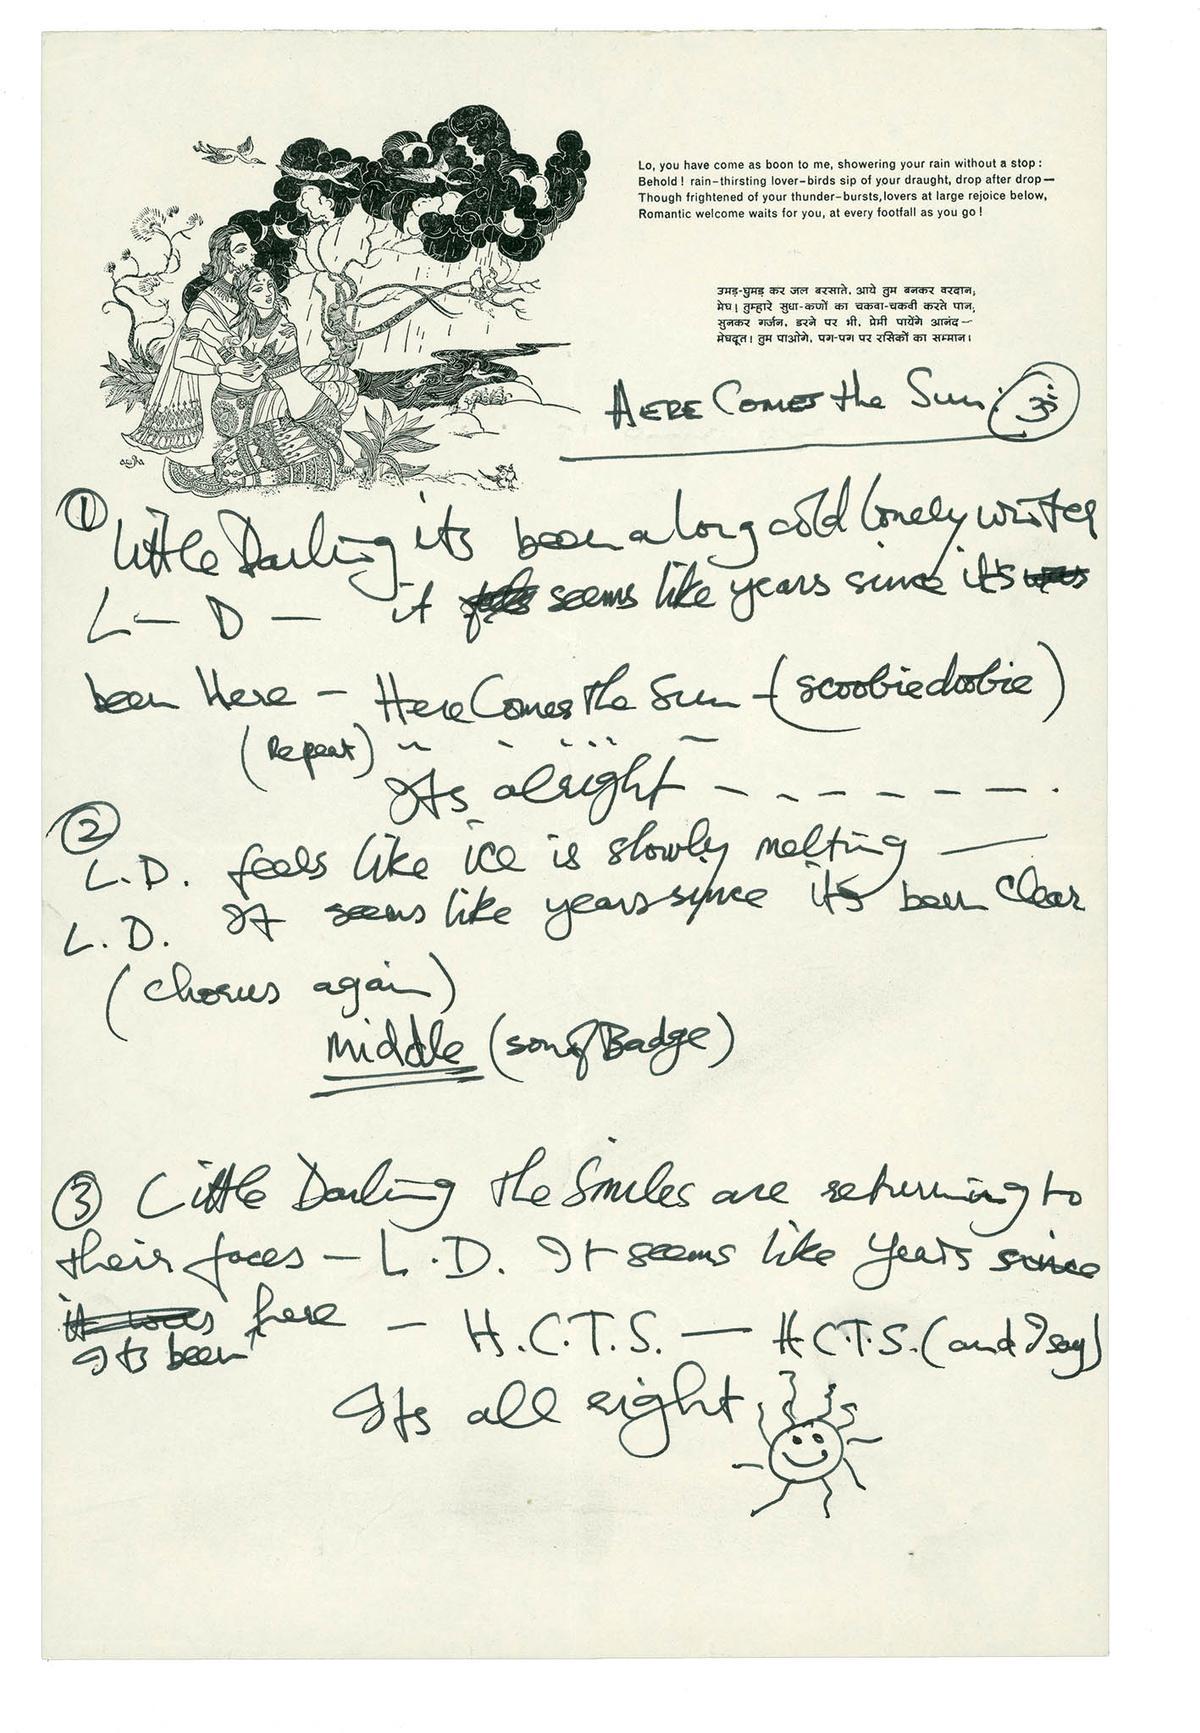 Lo, you have come as boon to me, showering your rain without a stop :
Behold ! rain-thirsting lover-birds sip of your draught, drop after drop—
Though frightened of your thunder-bursts, lovers at large rejoice below,
Romantic welcome waits for you, at every footfall as you go !
उमड़-घुमड़ कर जल बरसाते, आये तुम बनकर वरदान,
मेघ ! तुम्हारे सुधा-कणों का चकवा-चकवी करते पान,
सुनकर गर्जन, डरने पर भी, प्रेमी पायेंगे आनंद—
मेघदूत ! तुम पाओगे, पग-पग पर रसिकों का सम्मान।
HERE COMES the Sun. ॐ
① Little Darling its been a long cold lonely winter
L — D — it seems like years since its
been Here — Here Comes the Sun — (scoobiedoobie)
(Repeat)
Its alright — — — — — — — .
②
L.D. feels like ice is slowly melting —
L.D. It seems like years since its been clear
(chorus again)
middle (son of Badge)
③ Little Darling the Smiles are returning to
their faces — L.D. It seems like years since
it was here — H.C.T.S. — H.C.T.S. (and I say)
Its been
Its all right